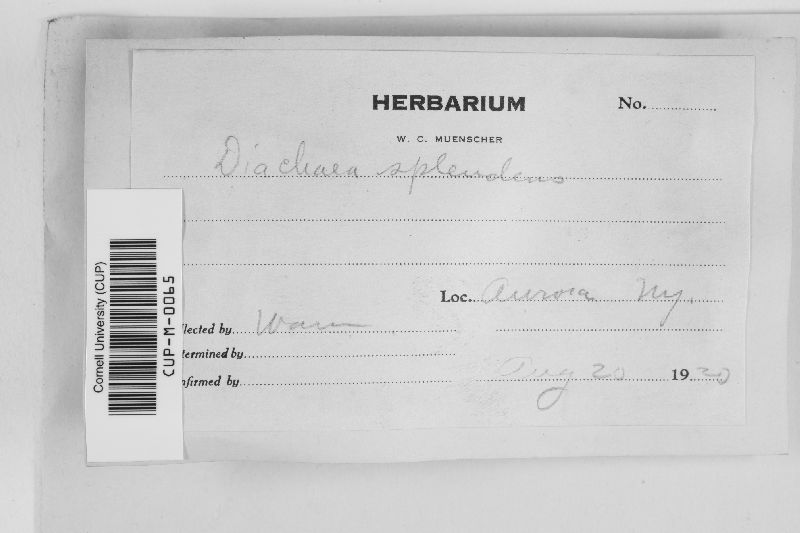 HERBARIUM
No.
W. C. MUENSCHER
Diachaea splendens
Loc. Aurora Ny.
llected by
termined by
nfirmed by
Aug 20 1920
Cornell University (CUP)
CUP-M-0065